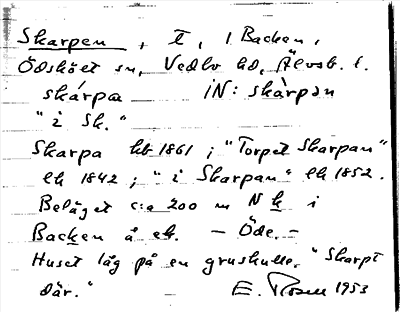 Skarpen, t, / Backen,
Ödsköet sn, Vedbo hd, Älvsb. l.
skárpa iN: skàrpan
"i Sk."
Skarpa hb 1861; "Torpet Skarpan"
lh 1842; "i Skarpan" lh 1852.
Beläget c:a 200 m N h i
Backen å ek. - Öde. -
Huset låg på en gruskulle. "Skarpt
där." E. Rosell 1953